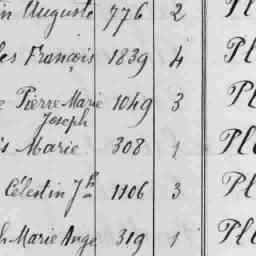 Auguste 776 2 Pl
François 1839 4 Pl
Pierre Marie 1049 3 Pl
Joseph
Marie 308 1 Pl
Célestin Jh 1106 3 Pl
Marie Ange 319 1 Pl